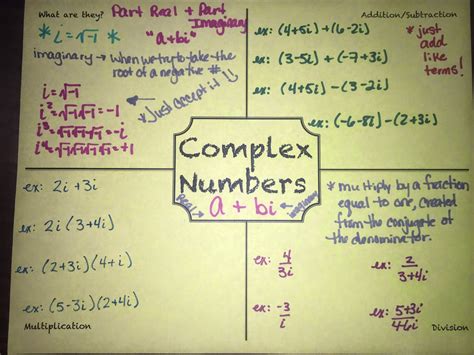 What are they?
Part Real + Part Imaginary
* i = √-1
"a+bi"
imaginary → when we try to take the
root of a negative #
i = √-1
i² = √-1√-1 = -1
i³ = √-1√-1√-1 = -i
i⁴ = √-1√-1√-1√-1 = +1
*Just accept it!
Addition/Subtraction
ex: (4+5i)+(6-2i)
ex: (3-5i)+(-7+3i)
ex: (4+5i)-(3-2i)
ex: (-6-8i)-(2+3i)
*just
add
like
terms!
Complex
Numbers
Real
a + bi
imaginary
ex: 2i +3i
ex: 2i(3+4i)
ex: (2+3i)(4+i)
ex: (5-3i)(2+4i)
Multiplication
*multiply by a fraction
equal to one, created
from the conjugate of
the denominator.
ex: 4/3i
ex: 2/3+4i
ex: -3/i
ex: 5+3i/4-6i
Division